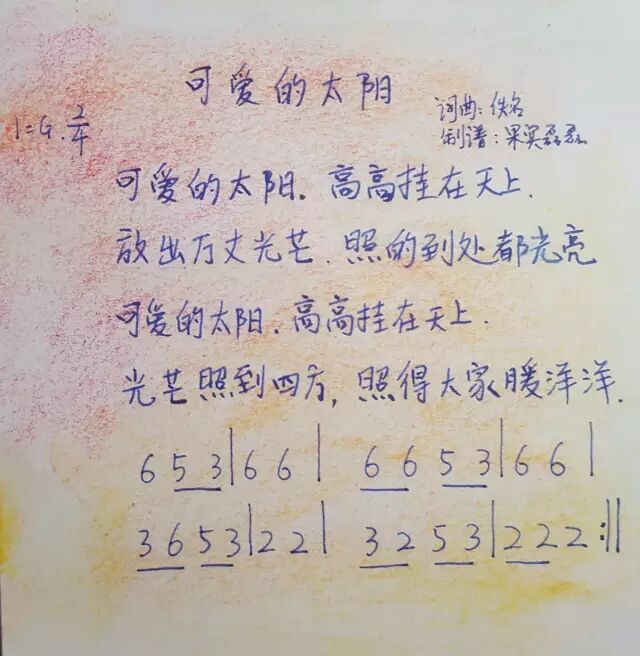 可爱的太阳
1=G.2/4
词曲:佚名
制谱:果实磊磊
可爱的太阳.高高挂在天上.
放出万丈光芒.照的到处都光亮
可爱的太阳.高高挂在天上.
光芒照到四方,照得大家暖洋洋.
6 5 3|6 6| 6 6 5 3|6 6|
3 6 5 3|2 2| 3 2 5 3|2 2 2:||